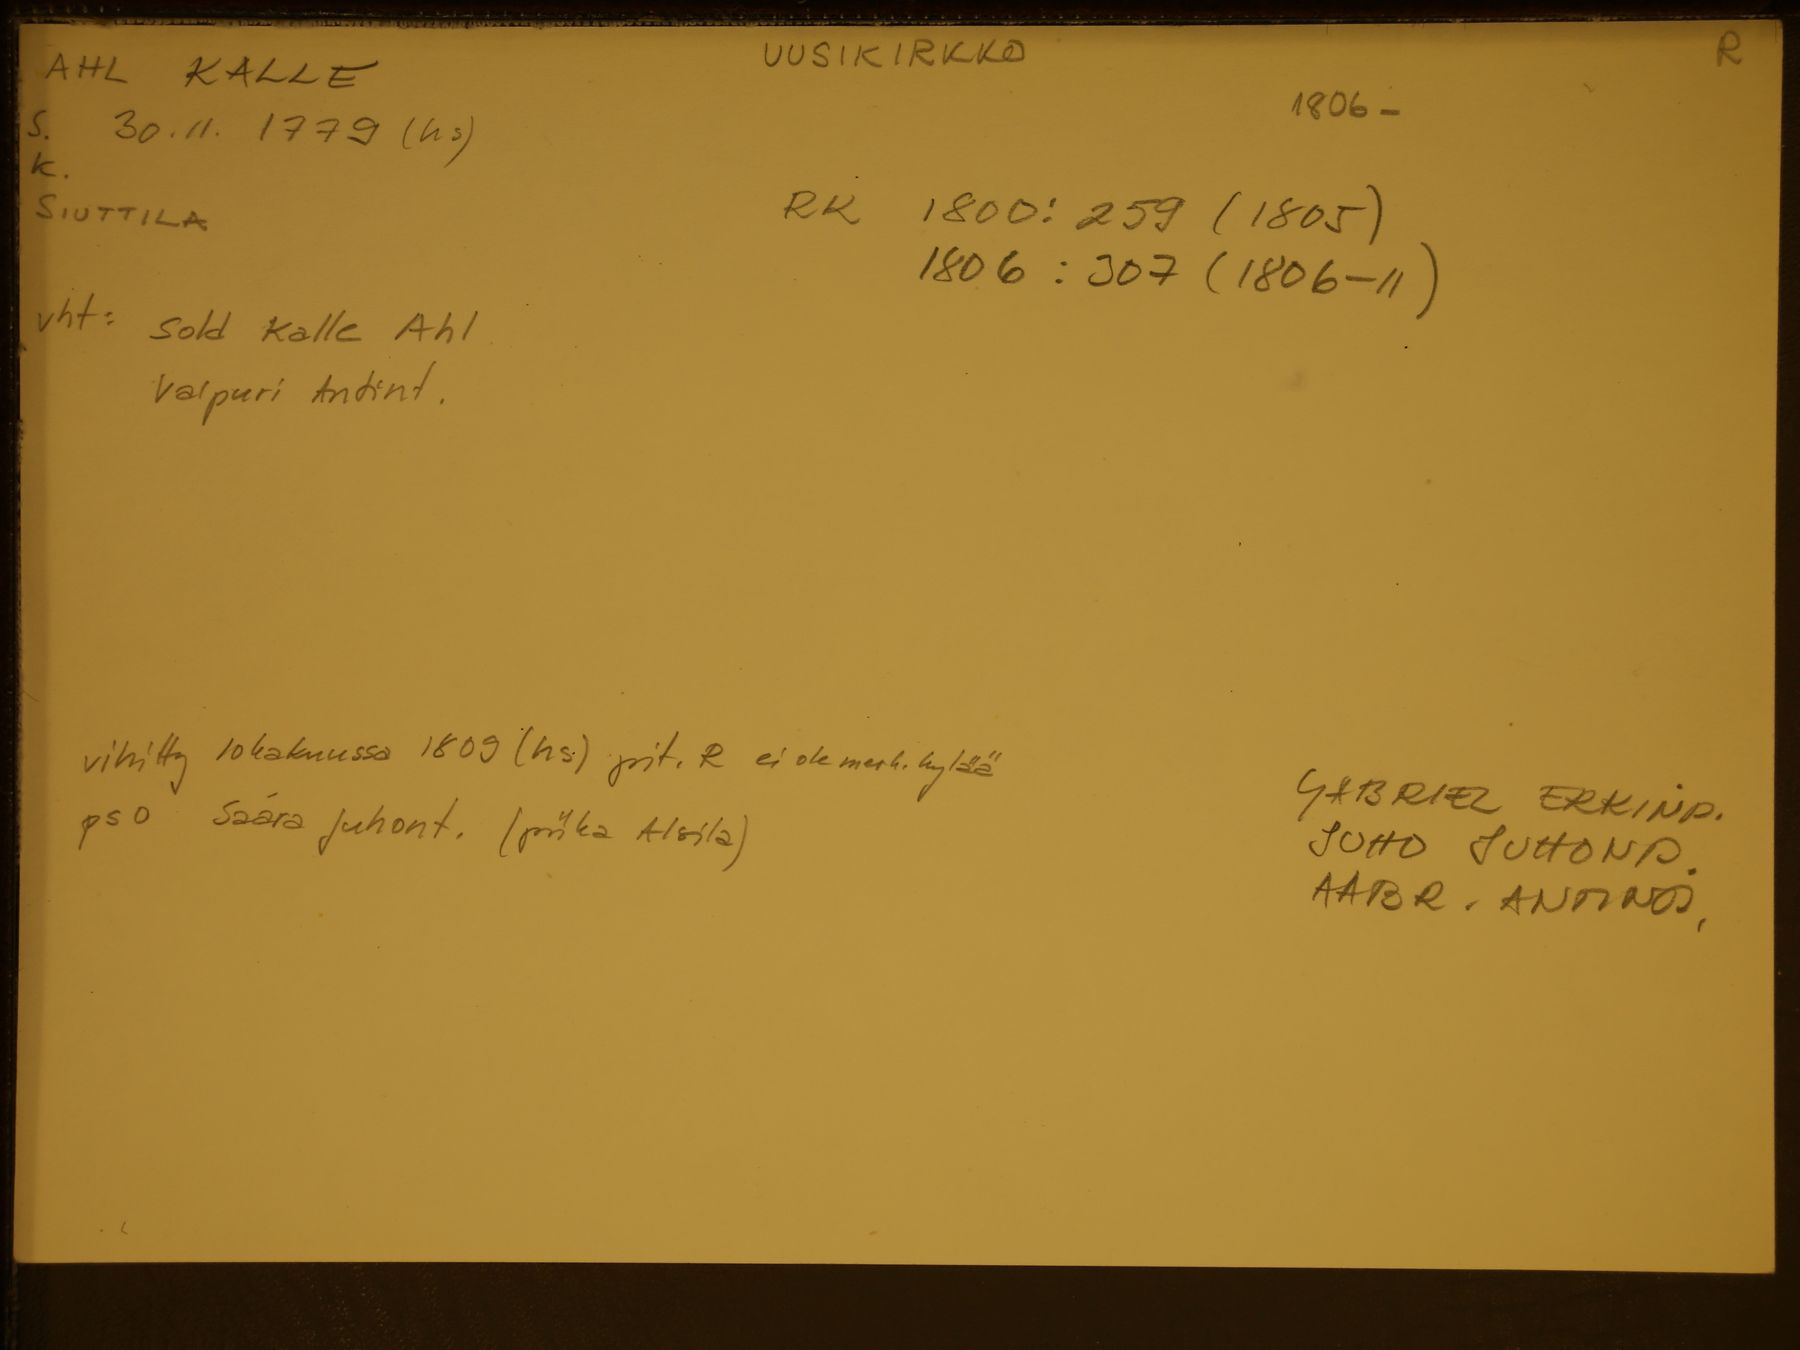 AHL KALLE
UUSIKIRKKO
R
1806-
S. 30.11. 1779 (hs)
K.
SIUTTILA
RK 1800: 259 (1805)
1806 : 307 (1806-11)
vht: Sold Kalle Ahl
Valpuri Antint.
vihitty lokakuussa 1809 (hs) pit. R ei ole merk. kylää
pso Saara Juhont. (piika Alsila)
GABRIEL ERKINP.
JUHO JUHONP.
AABR. ANTINP.